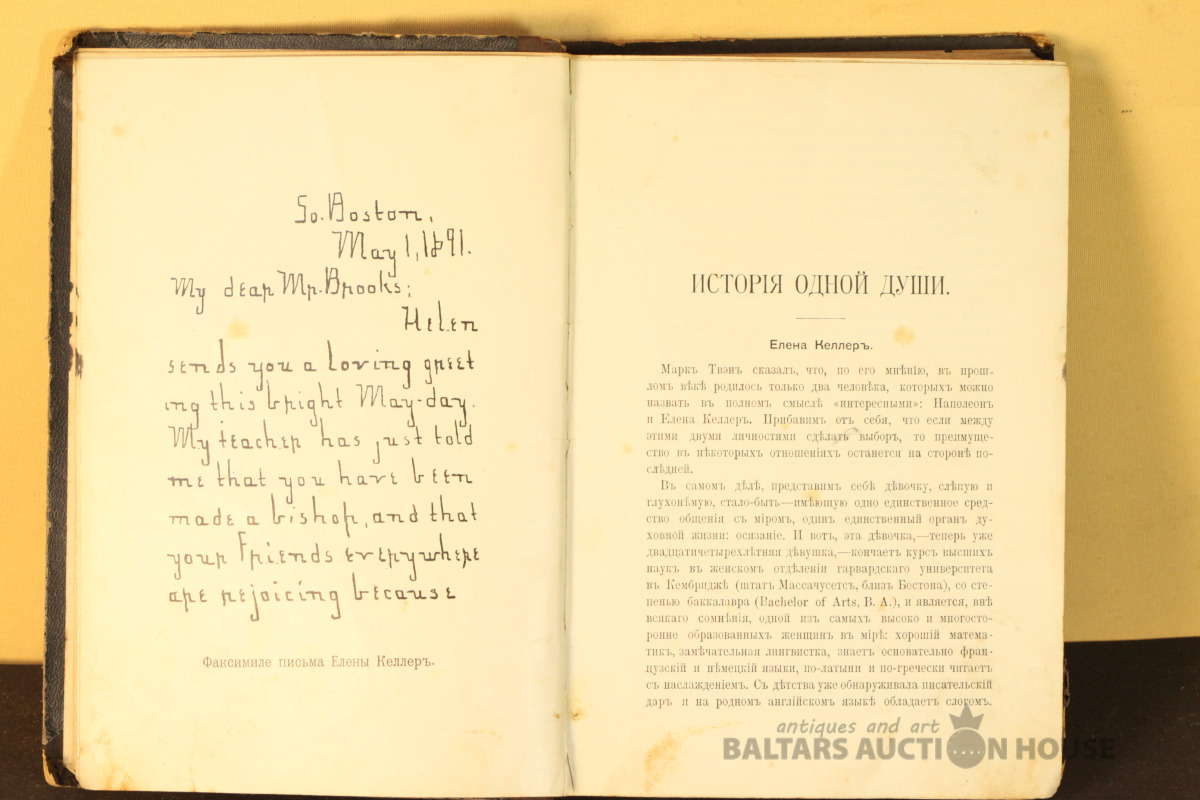 So. Boston,
May 1, 1891.
My dear Mr. Brooks;
Helen
sends you a loving greet
ing this bright May-day.
My teacher has just told
me that you have been
made a bishop, and that
your friends everywhere
are rejoicing because
Факсимиле письма Елены Келлеръ.
ИСТОРІЯ ОДНОЙ ДУШИ.
Елена Келлеръ.
Маркъ Твэнъ сказалъ, что, по его мнѣнію, въ прош-
ломъ вѣкѣ родилось только два человѣка, которыхъ можно
назвать въ полномъ смыслѣ «интересными»: Наполеонъ
и Елена Келлеръ. Прибавимъ отъ себя, что если между
этими двумя личностями сдѣлать выборъ, то преимуще-
ство въ нѣкоторыхъ отношеніяхъ останется на сторонѣ по-
слѣдней.
Въ самомъ дѣлѣ, представимъ себѣ дѣвочку, слѣпую и
глухонѣмую, стало-быть—имѣющую одно единственное сред-
ство общенія съ міромъ, одинъ единственный органъ ду-
ховной жизни: осязаніе. И вотъ, эта дѣвочка,—теперь уже
двадцатичетырехлѣтняя дѣвушка,—кончаетъ курсъ высшихъ
наукъ въ женскомъ отдѣленіи гарвардскаго университета
въ Кембриджѣ (штатъ Массачусетсъ, близъ Бостона), со сте-
пенью баккалавра (Bachelor of Arts, B. A.), и является, внѣ
всякаго сомнѣнія, одной изъ самыхъ высоко и многосто-
ронне образованныхъ женщинъ въ мірѣ: хорошій матема-
тикъ, замѣчательная лингвистка, знаетъ основательно фран-
цузскій и нѣмецкій языки, по-латыни и по-гречески читаетъ
съ наслажденіемъ. Съ дѣтства уже обнаруживала писательскій
даръ и на родномъ англійскомъ языкѣ обладаетъ слогомъ.
antiques and art
BALTARS AUCTION HOUSE